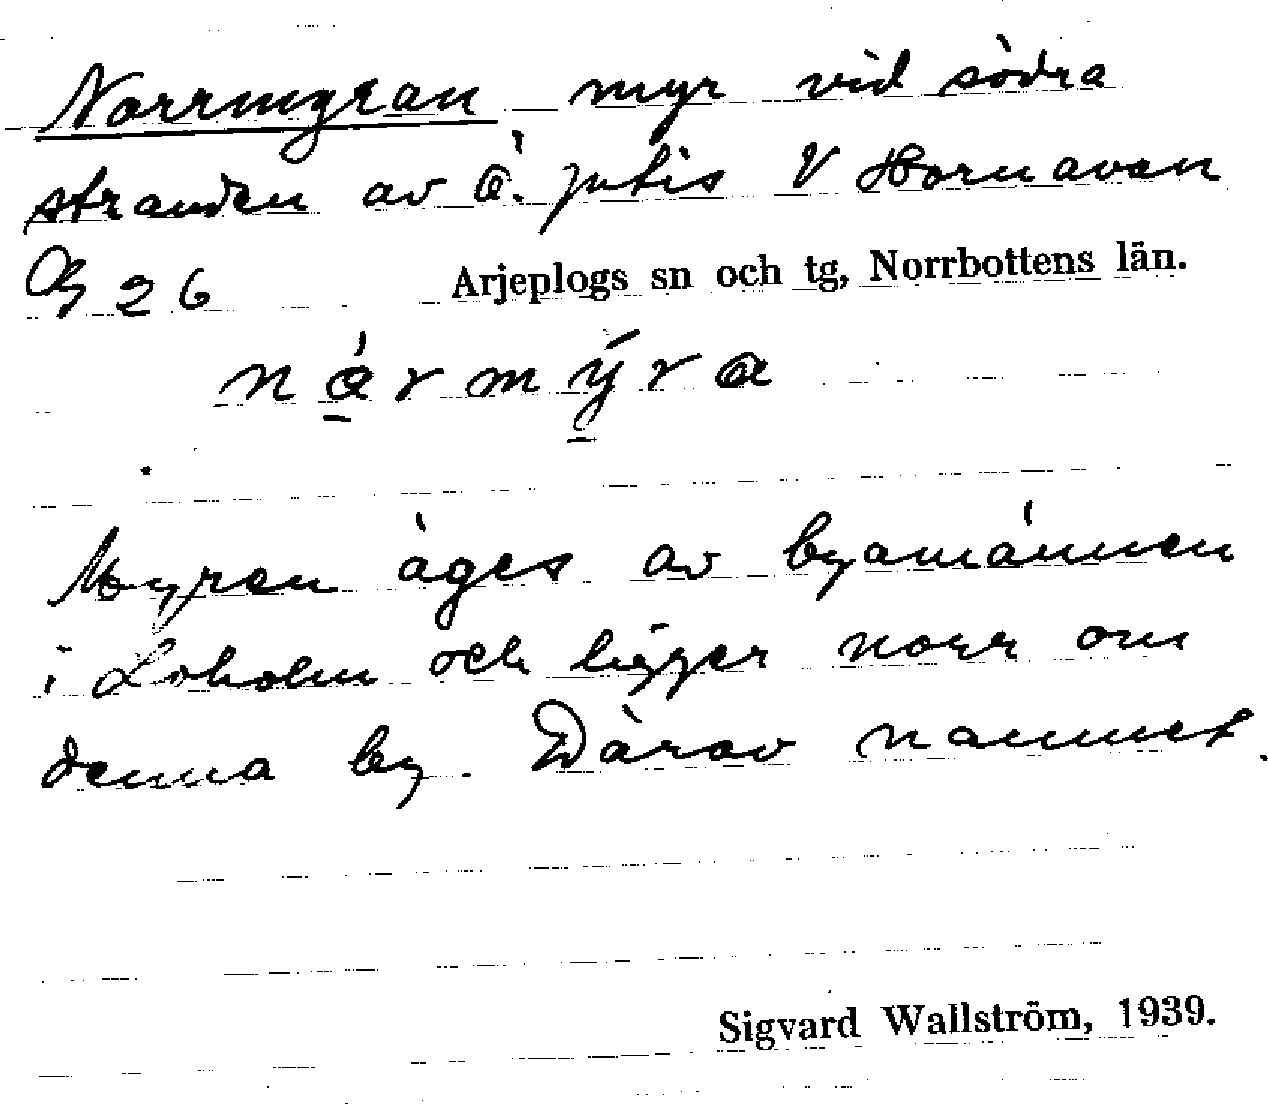 Norrmyran myr vid södra
stranden av Ö. Jutis V Hornavan
26 Arjeplogs sn och tg, Norrbottens län.
nármýra
Myren äges av byamännen
i Loholm och ligger norr om
denna by. Därav namnet.
Sigvard Wallström, 1939.